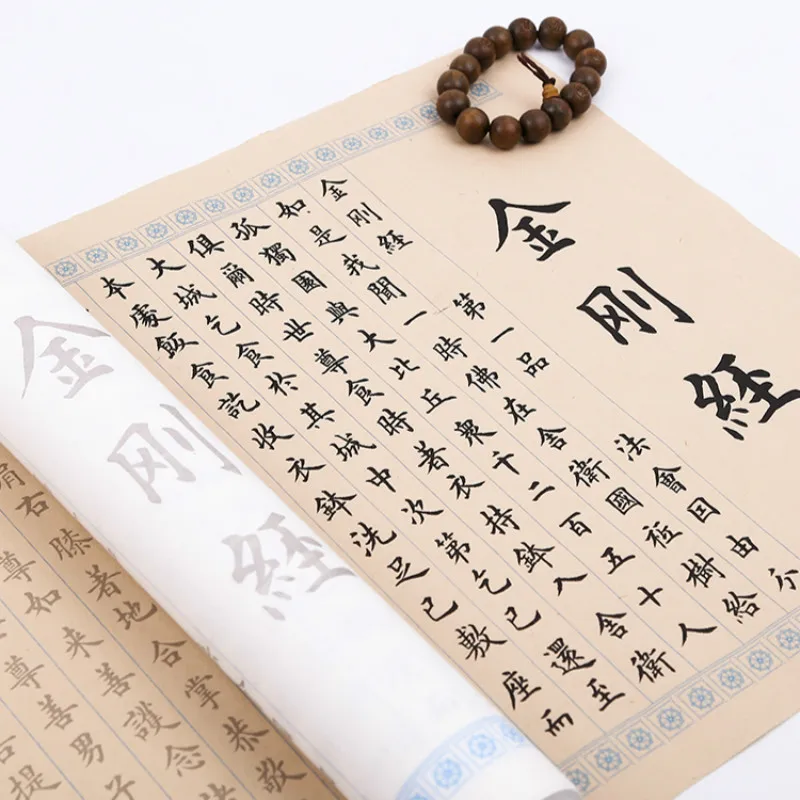 金刚經
金刚經 第一品 法會因由分
如是我聞一時佛在舍衛國祗樹給
孤獨園與大比丘衆千二百五十人
俱爾時世尊食時著衣持鉢入舍衛
大城乞食於其城中次第乞已還至
本處飯食訖收衣鉢洗足已敷座而
金刚經
肩右膝著地合掌恭敬
尊如来善護念
尊善男子
提